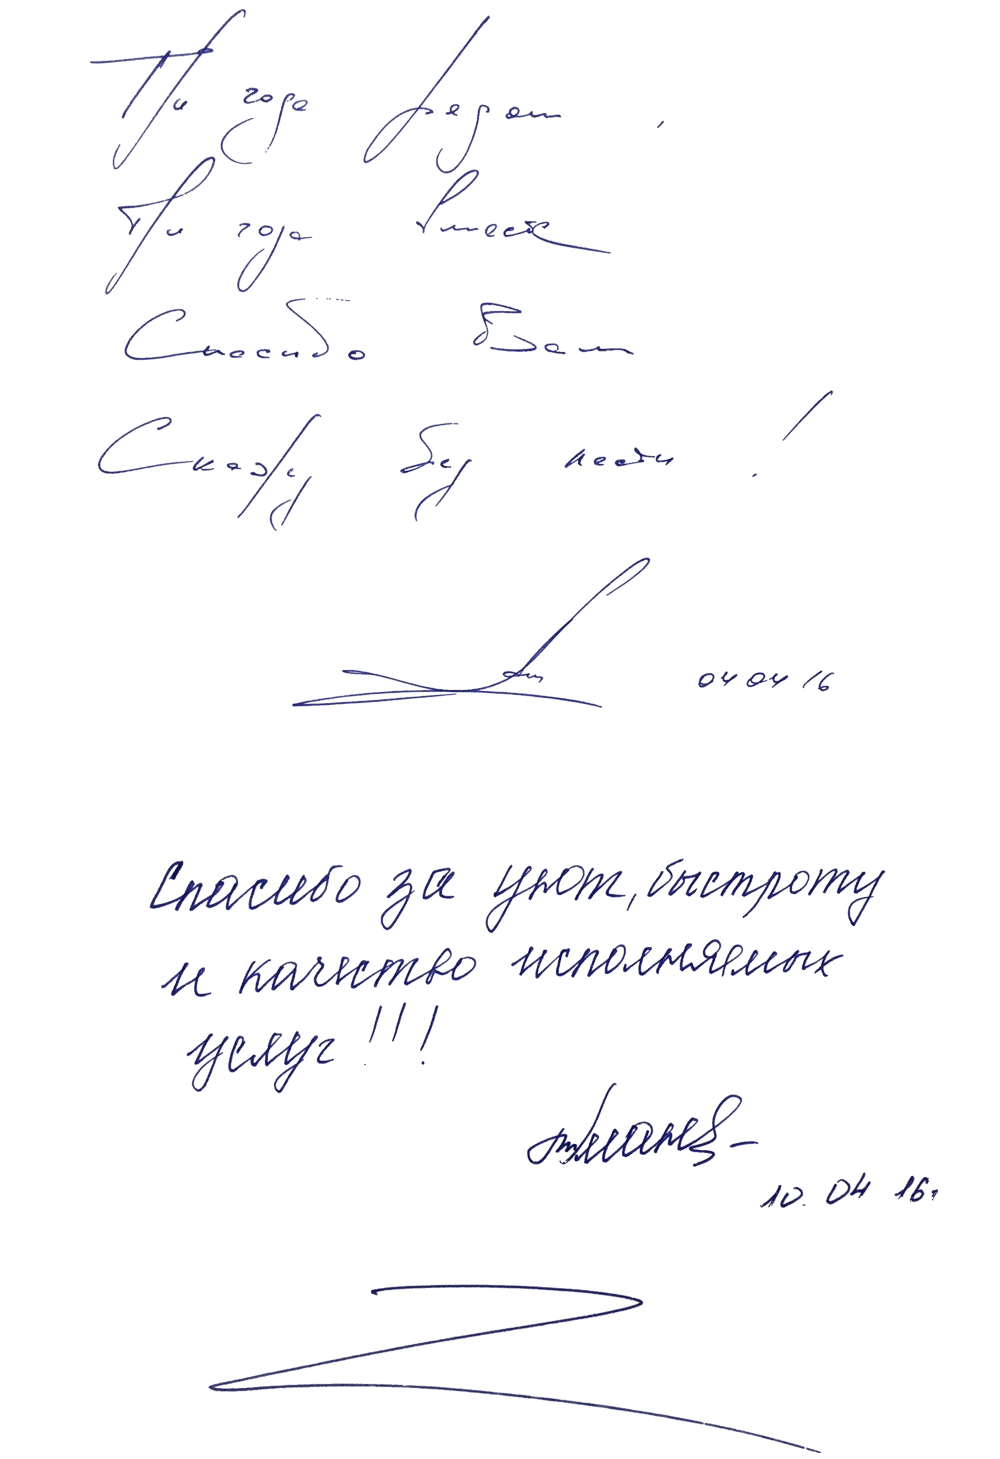 Три года рядом,
Три года вместе
Спасибо Вам
Скажу без лести!
04 04 16
Спасибо за уют, быстроту
и качество исполняемых
услуг!!!
10. 04 16.